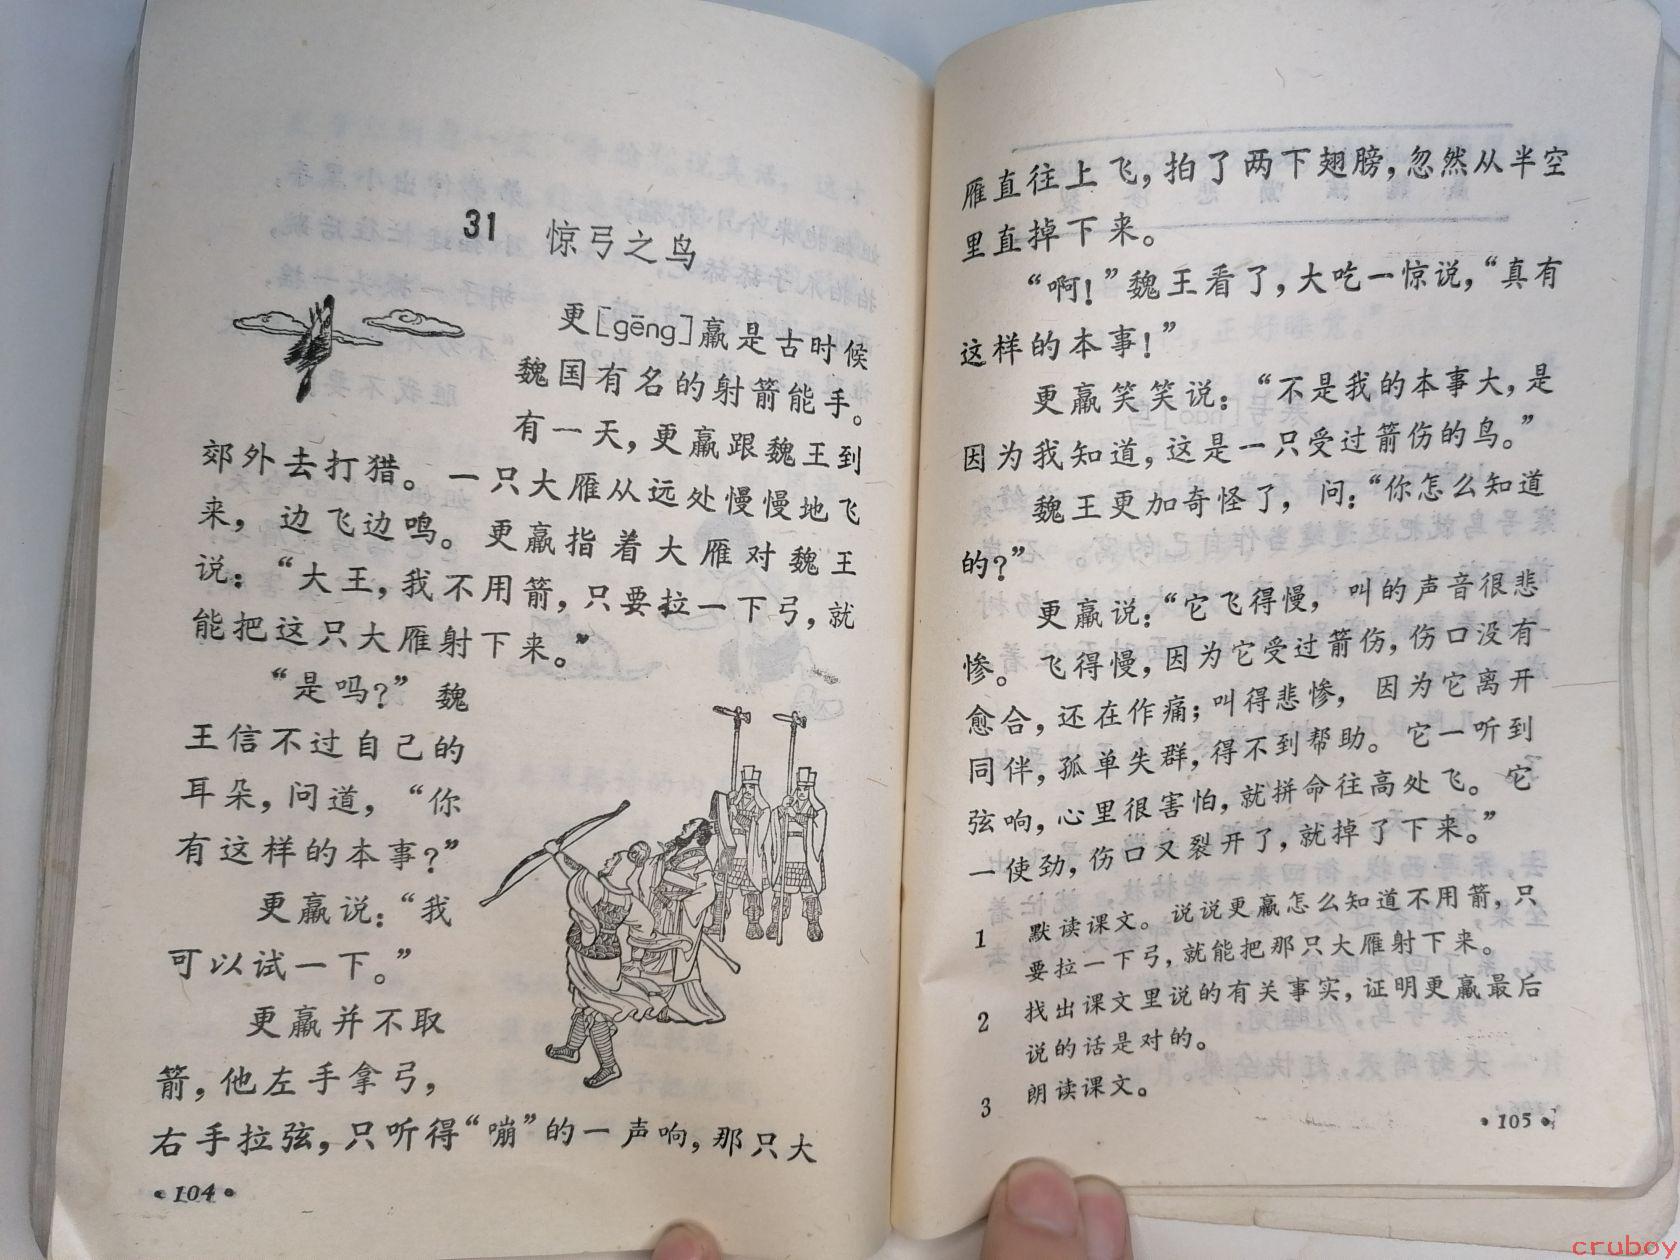 31 惊弓之鸟
更[gēng]羸是古时候
魏国有名的射箭能手。
有一天，更羸跟魏王到
郊外去打猎。一只大雁从远处慢慢地飞
来，边飞边鸣。更羸指着大雁对魏王
说：“大王，我不用箭，只要拉一下弓，就
能把这只大雁射下来。”
“是吗？”魏
王信不过自己的
耳朵，问道，“你
有这样的本事？”
更羸说：“我
可以试一下。”
更羸并不取
箭，他左手拿弓，
右手拉弦，只听得“嘣”的一声响，那只大
·104·
雁直往上飞，拍了两下翅膀，忽然从半空
里直掉下来。
“啊！”魏王看了，大吃一惊说，“真有
这样的本事！”
更羸笑笑说：“不是我的本事大，是
因为我知道，这是一只受过箭伤的鸟。”
魏王更加奇怪了，问：“你怎么知道
的？”
更羸说：“它飞得慢，叫的声音很悲
惨。飞得慢，因为它受过箭伤，伤口没有
愈合，还在作痛；叫得悲惨，因为它离开
同伴，孤单失群，得不到帮助。它一听到
弦响，心里很害怕，就拼命往高处飞。它
一使劲，伤口又裂开了，就掉了下来。”
1 默读课文。说说更羸怎么知道不用箭，只
要拉一下弓，就能把那只大雁射下来。
2 找出课文里说的有关事实，证明更羸最后
说的话是对的。
3 朗读课文。
·105·
cruboy